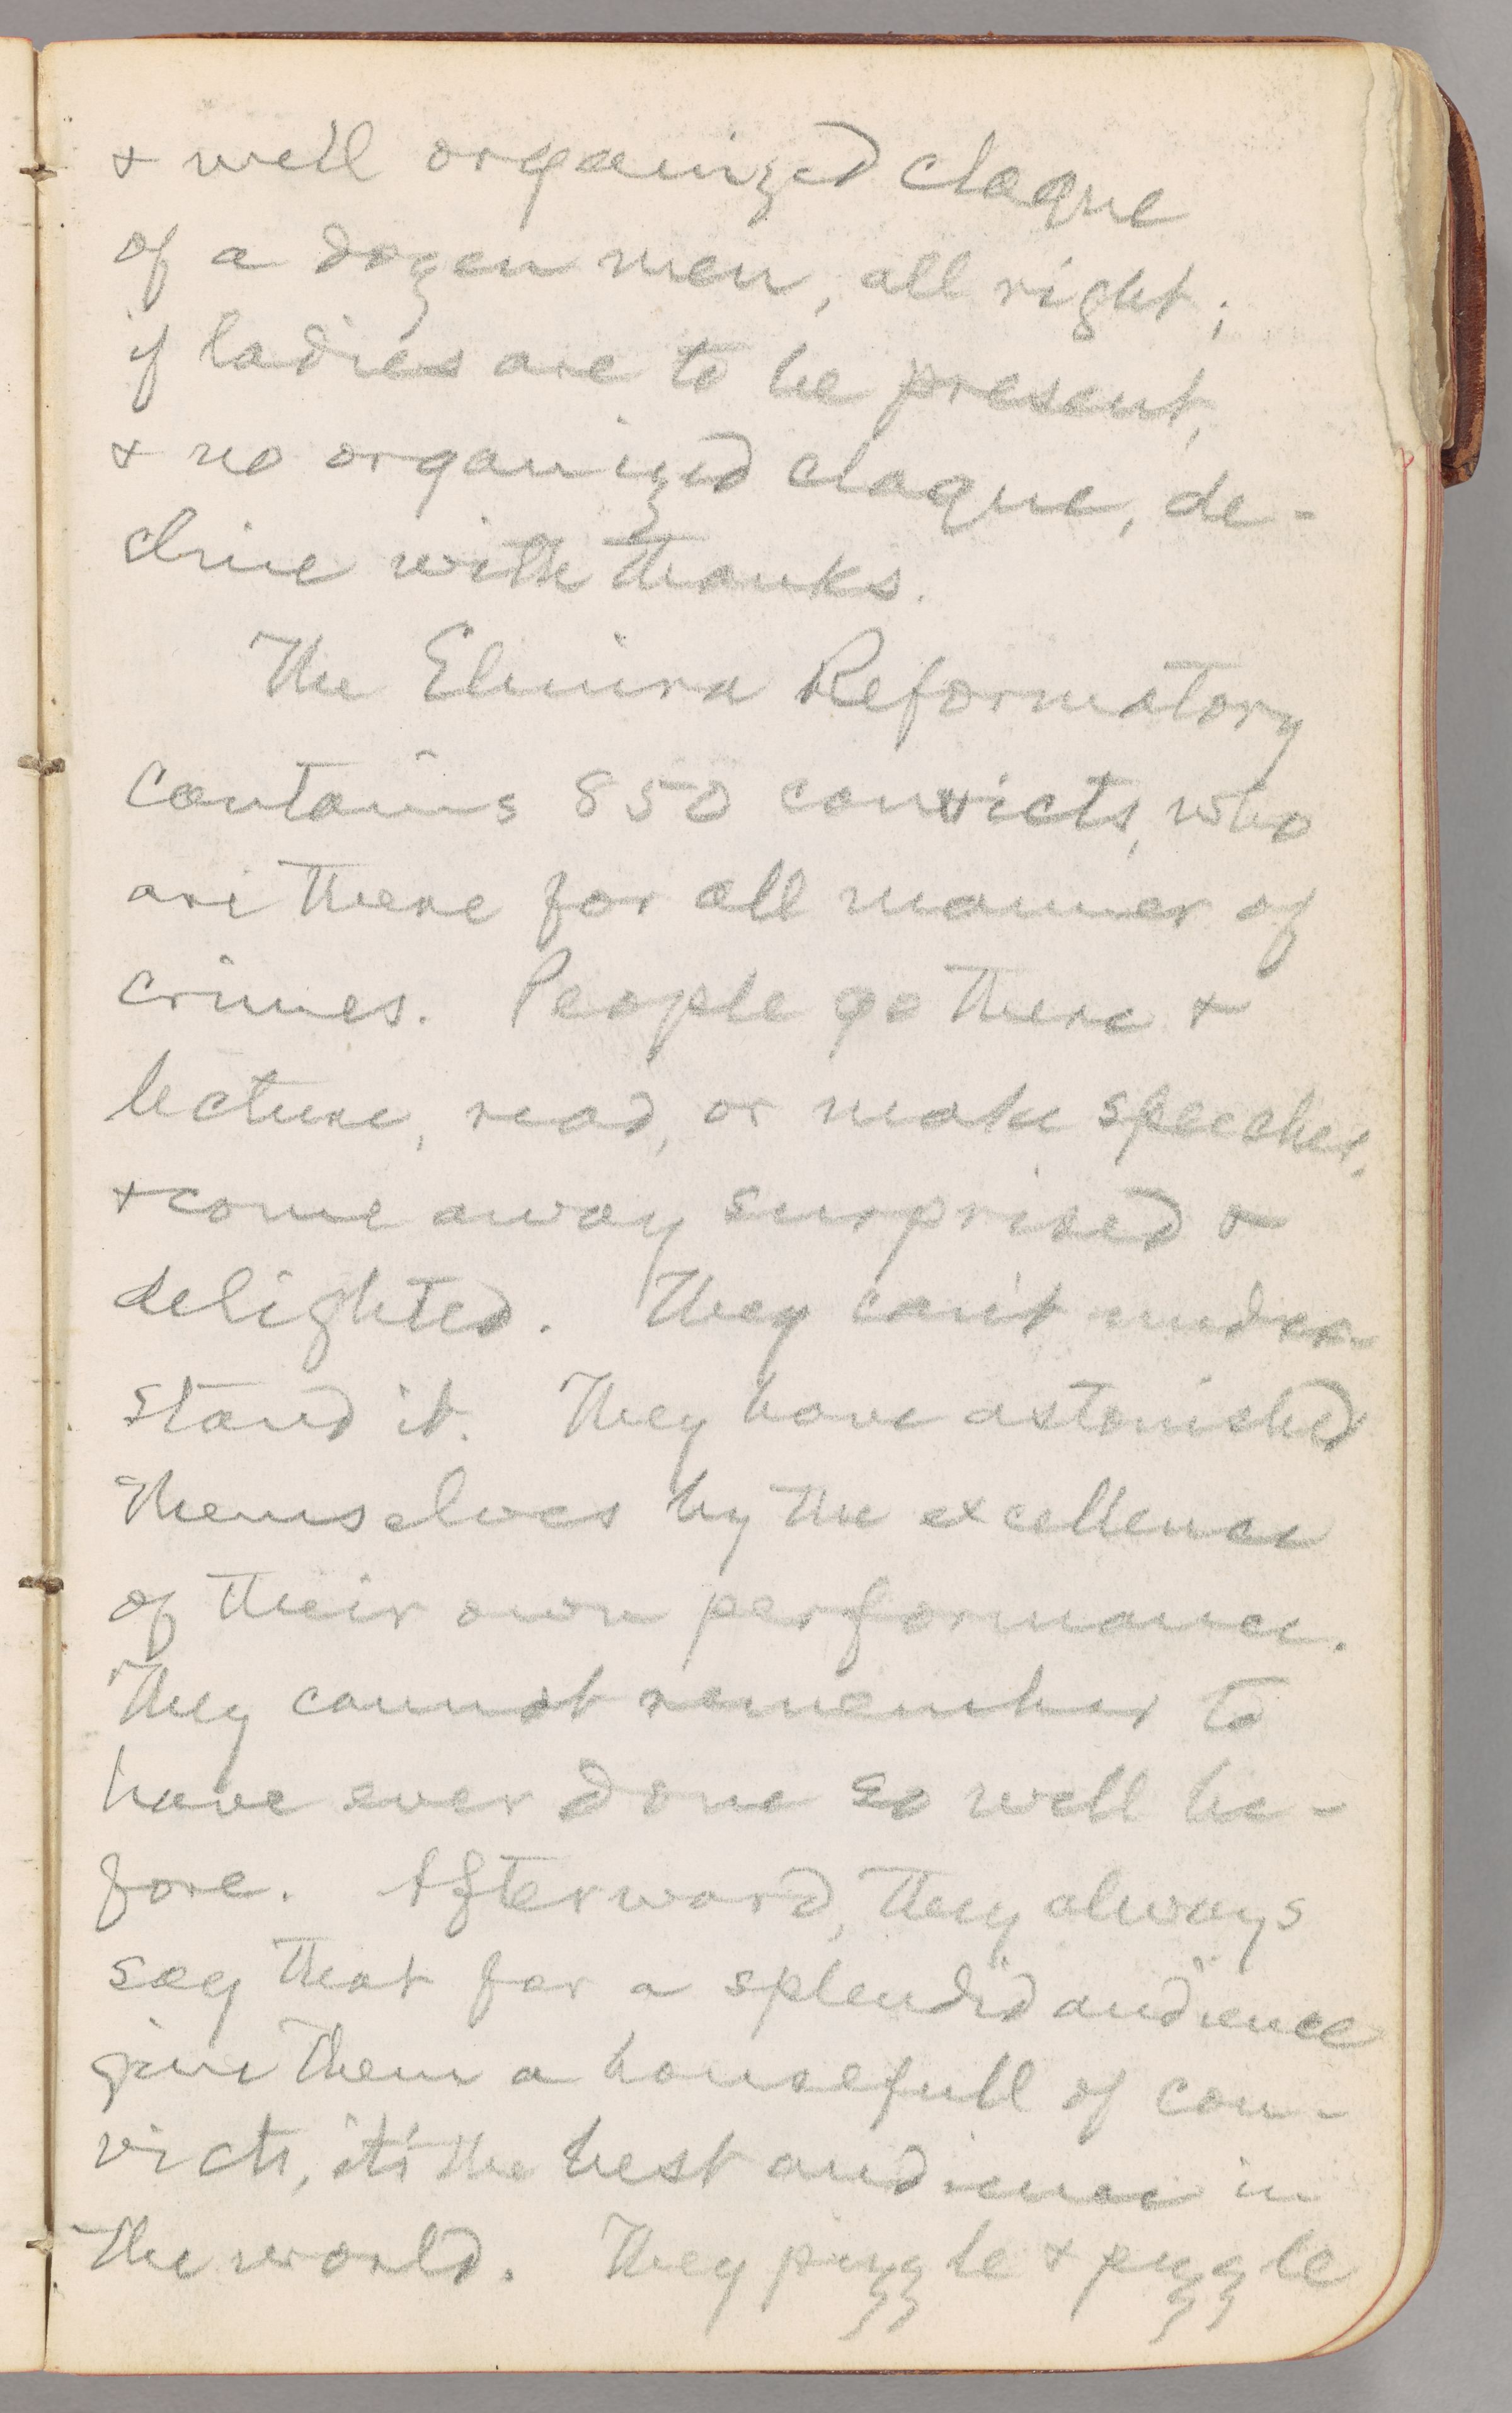 & well organized claque
of a dozen men, all right;
if ladies are to be present,
& no organized claque, de-
cline with thanks.
The Elmira Reformatory
contains 850 convicts, who
are there for all manner of
crimes. People go there &
lecture, read, or make speeches,
& come away surprised &
delighted. They can't under-
stand it. They have astonished
themselves by the excellence
of their own performance.
They cannot remember to
have ever done so well be-
fore. Afterward, they always
say that for a splendid audience
give them a housefull of con-
victs, it's the best audience in
the world. They puzzle & puzzle